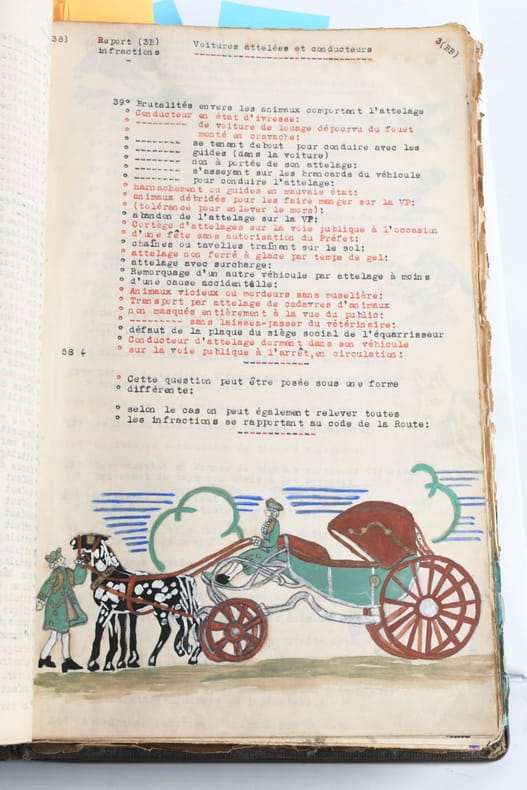 38) Report (3B) Voitures attelées et conducteurs 3(BB)
infractions
39° Brutalités envers les animaux comportant l'attelage
° Conducteur en état d'ivresse:
° --------- de voiture de louage dépourvu du fouet
monté en cravache:
° --------- se tenant debout pour conduire avec les
° --------- guides (dans la voiture)
° --------- non à portée de son attelage:
° --------- s'asseyant sur les brancards du véhicule
pour conduire l'attelage:
° harnachement ou guides en mauvais état:
° animaux débridés pour les faire manger sur la VP:
° (tolérance pour enlever le mors):
° abandon de l'attelage sur la VP:
° Cortège d'attelages sur la voie publique à l'occasion
° d'une fête sans autorisation du Préfet:
° chaînes ou tavelles traînant sur le sol:
° attelage non ferré à glace par temps de gel:
° attelage avec surcharge:
° Remorquage d'un autre véhicule par attelage à moins
° d'une cause accidentelle:
° Animaux vicieux ou mordeurs sans muselière:
° Transport par attelage de cadavres d'animaux
° non masqués entièrement à la vue du public:
° --------- sans laissez-passer du vétérinaire:
° défaut de la plaque du siège social de l'équarrisseur
° Conducteur d'attelage dormant dans son véhicule
58 ° sur la voie publique à l'arrêt,en circulation:
° Cette question peut être posée sous une forme
° différente:
° selon le cas on peut également relever toutes
° les infractions se rapportant au code de la Route: